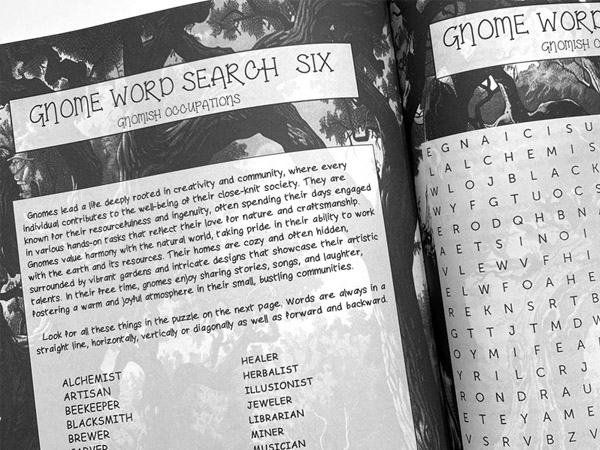 GNOME WORD SEARCH SIX
GNOMISH OCCUPATIONS
Gnomes lead a life deeply rooted in creativity and community, where every
individual contributes to the well-being of their close-knit society. They are
known for their resourcefulness and ingenuity, often spending their days engaged
in various hands-on tasks that reflect their love for nature and craftsmanship.
Gnomes value harmony with the natural world, taking pride in their ability to work
with the earth and its resources. Their homes are cozy and often hidden,
surrounded by vibrant gardens and intricate designs that showcase their artistic
talents. In their free time, gnomes enjoy sharing stories, songs, and laughter,
fostering a warm and joyful atmosphere in their small, bustling communities.
Look for all these things in the puzzle on the next page. Words are always in a
straight line, horizontally, vertically or diagonally as well as forward and backward.
ALCHEMIST
ARTISAN
BEEKEEPER
BLACKSMITH
BREWER
HEALER
HERBALIST
ILLUSIONIST
JEWELER
LIBRARIAN
MINER
MUSICIAN
GNOME WORD
GNOMISH
E G N A I C I S U
L A L C H E M I S
W L O J B L A C K
W Y F G T U O C S
E R O D Q H B N
A E T S I N O I
V L E W V F H I
E L W F O A H E
R E K N S R T B
G T T J T M D W
O Y M I F E A
Y R I L C R J
R O N D R A U
E T E Y A M E
V S R V B Z V